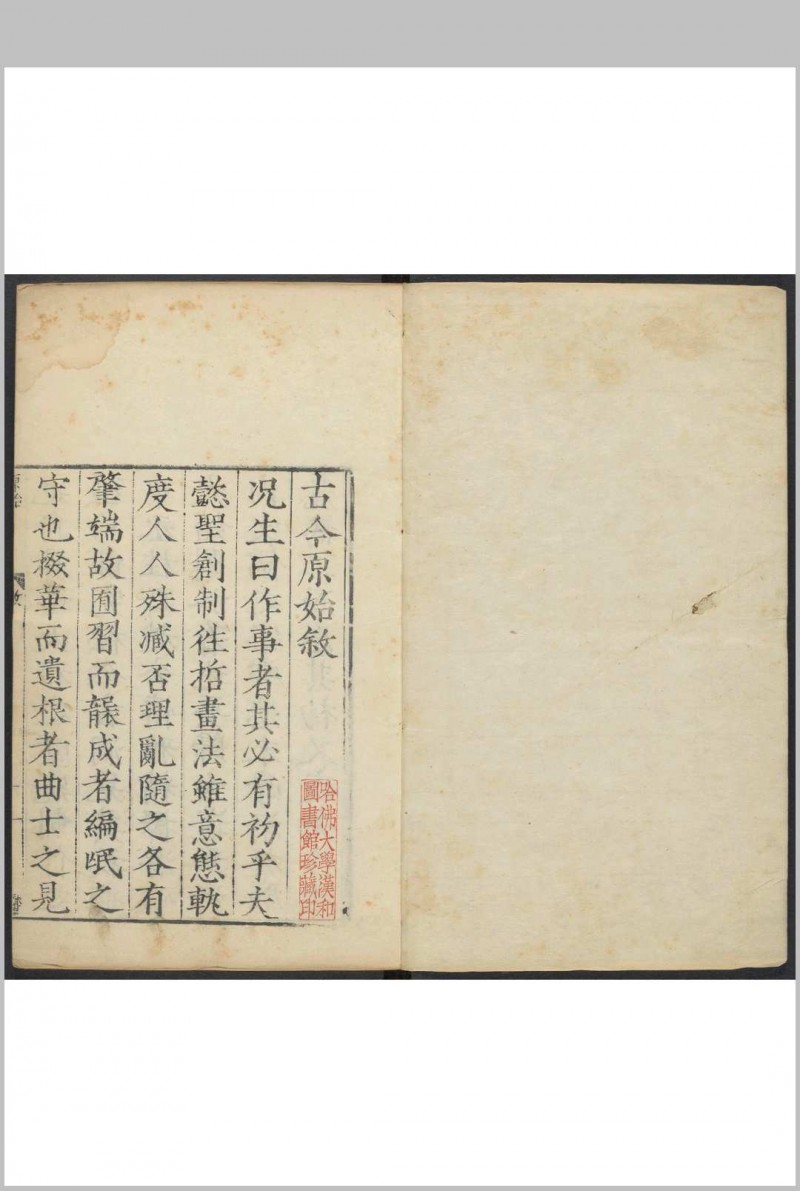 古今原始敘
哈佛大學漢和
圖書館珍藏印
况生曰作事者其必有初乎夫
懿聖創制徃哲畫法雖意態軌
度人人殊臧否理亂隨之各有
肇端故囿習而䙝成者編氓之
守也掇華而遺根者曲士之見
原始